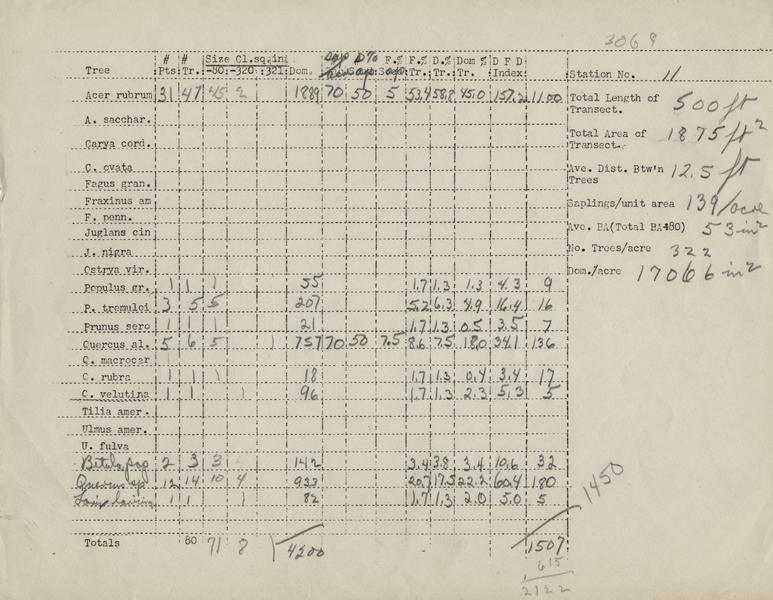 3069
# # Size Cl.sq.in D% F.% F.% D.% Dom % D F D
Tree Pts Tr. -80 -320 321 Dom. Sap. Sap Tr. Tr. Tr. Index Station No. 11
Acer rubrum 31 47 45 2 1889 70 50 5 53.4 58.8 45.0 157.2 1100 Total Length of Transect. 500 ft
A. sacchar.
Carya cord. Total Area of Transect. 1875 ft²
C. ovata Ave. Dist. Btw'n Trees 12.5 ft
Fagus gran.
Fraxinus am Saplings/unit area 139/acre
F. penn.
Juglans cin Ave. BA(Total BA480) 53 in²
J. nigra No. Trees/acre 322
Ostrya vir. Dom./acre 17066 in²
Populus gr. 1 1 1 55 1.7 1.3 1.3 4.3 9
P. tremuloi 3 5 5 207 5.2 6.3 4.9 16.4 16
Prunus sero 1 1 1 21 1.7 1.3 0.5 3.5 7
Quercus al. 5 6 5 1 757 70 50 7.5 8.6 7.5 18.0 34.1 136
Q. macrocar
Q. rubra 1 1 1 18 1.7 1.3 0.4 3.4 17
Q. velutina 1 1 1 96 1.7 1.3 2.3 5.3 5
Tilia amer.
Ulmus amer.
U. fulva
Betula pap 2 3 3 142 3.4 3.8 3.4 10.6 32
Quercus sp 12 14 10 4 933 20.7 17.5 22.2 60.4 180
1 1 1 82 1.7 1.3 2.0 5.0 5
1450
Totals 80 71 8 1 4200 1507
615
2122